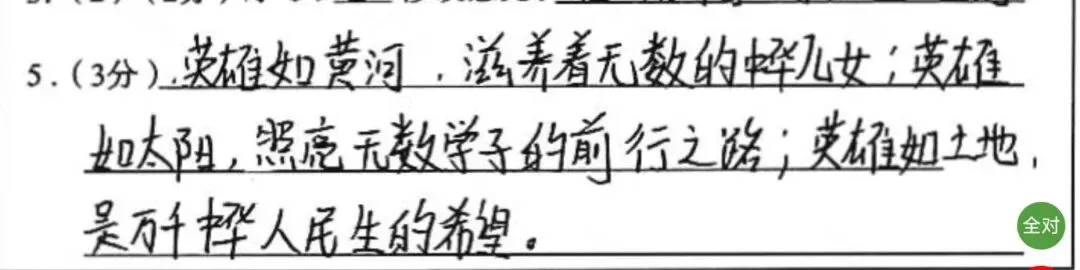 5.(3分).英雄如黄河,滋养着无数的中华儿女;英雄
如太阳,照亮无数学子的前行之路;英雄如土地,
是万千中华人民生的希望。
全对